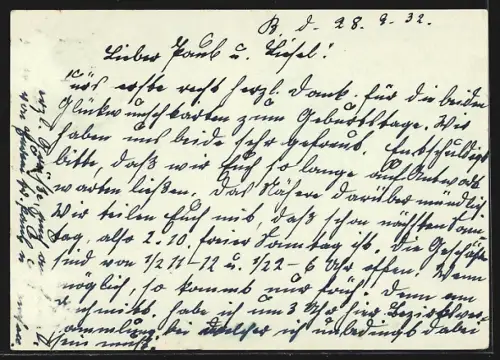 B. d. 28. 9. 32.
Lieber Paul u. Liesel!
Fürs erste recht herzl. Dank für die beiden
Glückwunschkarten zum Geburtstage. Wir
haben uns beide sehr gefreut. Entschuldigt
bitte, daß wir Euch so lange auf Antwort
warten ließen. Das Nähere darüber mündlich
Wir teilen Euch mit, daß schon nächsten Sonn
tag, also 2. 10. freier Sonntag ist. Die Geschäfte
sind von 1/2 11-12 u. 1/2 2-6 Uhr offen. Wenn
möglich, so kommt nur früh. Denn am
Nachmitt. habe ich um 3 Uhr hier Bezirksver-
sammlung bei welcher ich unbedingt dabei
sein muß.